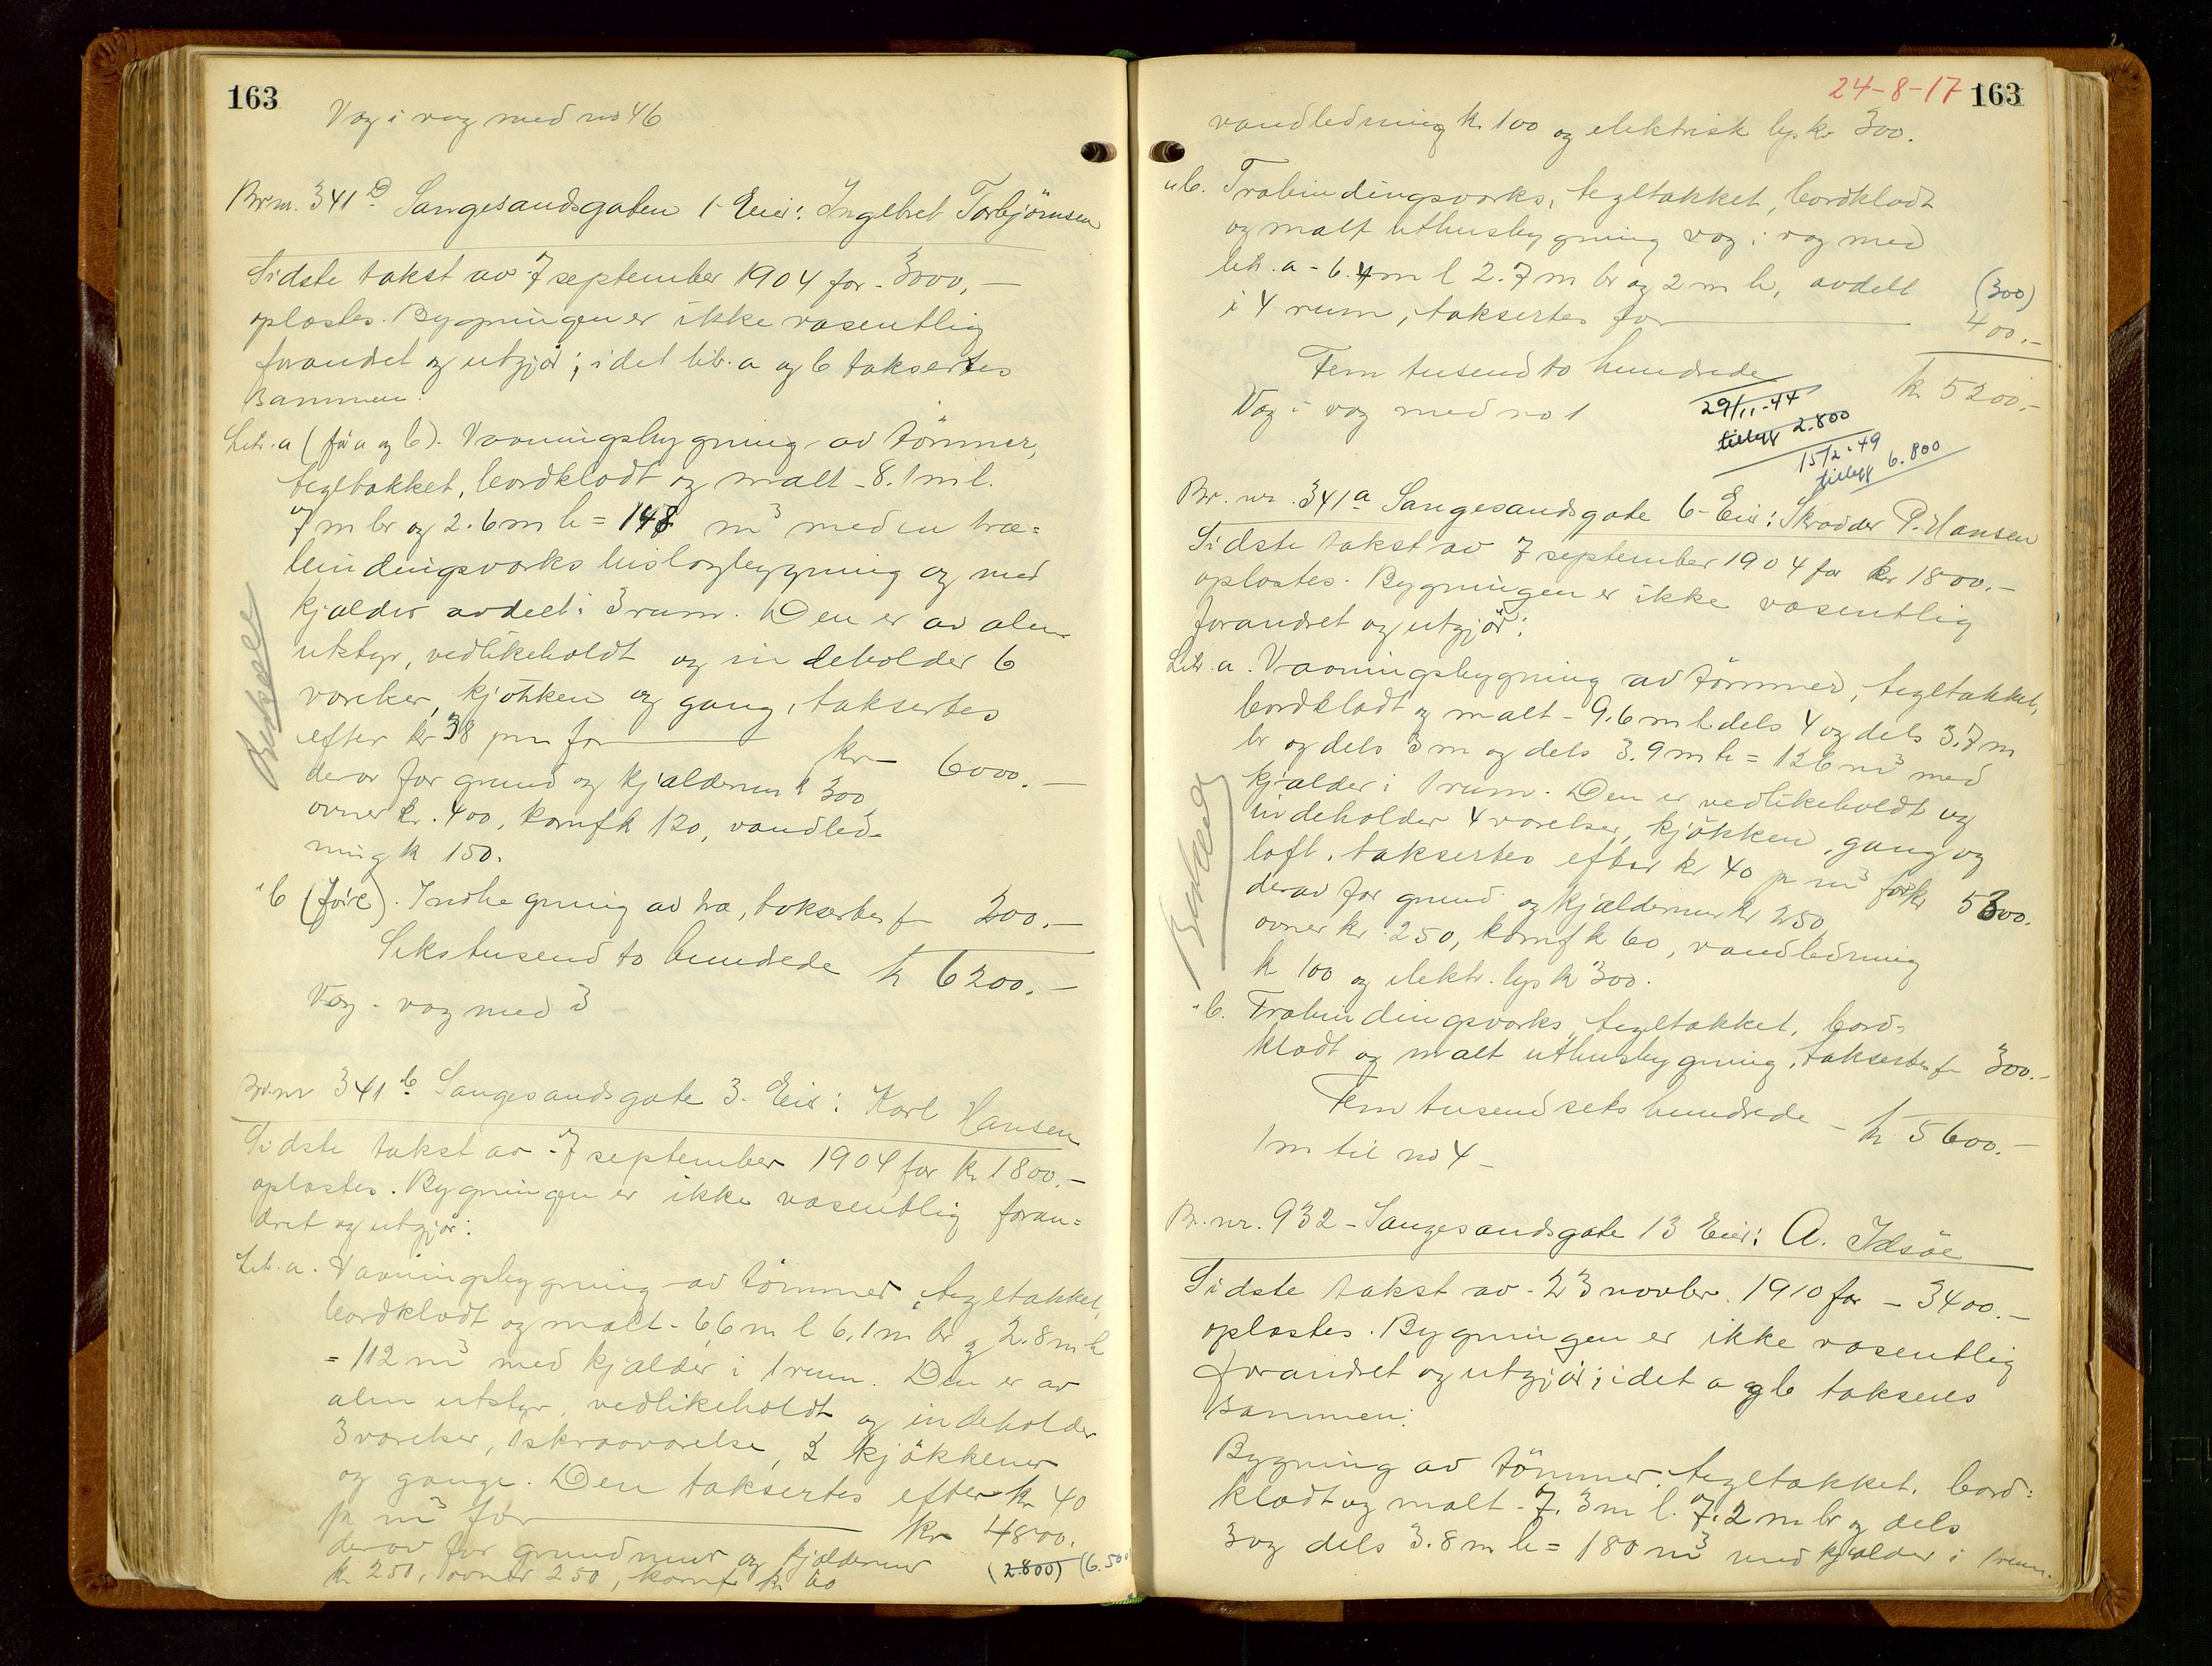 163
Væg i væg med no 46
Br.nr. 341 D Langesandsgaten 1- Eier: Ingebret Torbjörnsen
Sidste takst av 7 september 1904 for - 3000,-
oplæstes. Bygningen er ikke væsentlig
forandret og utgjør; idet litr. a og b taksertes
sammen:
Litr. a (før a og b). Vaaningsbygning av tömmer,
tegltækket, bordklædt og malt - 8.1 m l.
7 m br og 2.6 m h = 148 m³ med en træ-
bindingsverks bislagbygning og med
kjælder avdelt i 3 rum. Den er av alm
utstyr, vedlikeholdt og indeholder 6
værelser, kjökken og gang, taksertes
efter kr 38 pr m for kr 6000.-
derav for grund og kjældermur k 300
ovner kr. 400, komf k 120, vandled-
ning k 150.
" b (før c). Indhegning av træ, taksertes f 200.-
Sekstusend to hundrede k 6200.-
Væg i væg med 3
Br.nr 341 b Langesandsgate 3. Eier: Karl Hansen
Sidste takst av 7 september 1904 for kr 1800.-
oplæstes. Bygningen er ikke væsentlig foran-
dret og utgjør:
Litr. a. Vaaningsbygning av tömmer, tegltækket,
bordklædt og malt - 6,6 m l 6,1 m br og 2.8 m h
= 112 m³ med kjælder i 1 rum. Den er av
alm utstyr, vedlikeholdt og indeholder
3 værelser, 1 skraaværelse, 2 kjökkener
og gange. Den taksertes efter kr 40
pr m³ for kr 4800.
derav for grundmur og kjældermur
k 250, ovner 250, komf k 60 (2.800) (6.500
24-8-17 163
vandledning k 100 og elektrisk lys kr 300.
" b. Træbindingsverks, tegltækket, bordklædt
og malt uthusbygning væg i væg med
litr. a - 6.4 m l 2.7 m br og 2 m h, avdelt
i 4 rum, taksertes for (300) 400.-
Fem tusend to hundrede k 5200.-
Væg i væg med no 1
29/11-44
tillegg 2.800
15/2-49
tillegg 6.800
Br. nr. 341 a Langesandsgate 6- Eier: Skrædder P. Hansen
Sidste takst av 7 september 1904 for kr 1800.-
oplæstes. Bygningen er ikke væsentlig
forandret og utgjør:
Litr. a. Vaaningsbygning av tömmer, tegltækket,
bordklædt og malt - 9.6 m l dels 4 og dels 3.7 m
br og dels 3 m og dels 3.9 m h = 126 m³ med
kjælder i 1 rum. Den er vedlikeholdt og
indeholder 4 værelser, kjökken, gang og
loft, taksertes efter kr 40 pr m³ for kr 5300.
derav for grund og kjældermur kr 250
ovner kr. 250, komf k 60, vandledning
k 100 og elektr. lys k 300.
" b. Træbindingsverks, tegltækket, bord-
klædt og malt uthusbygning, taksertes f 300.-
Fem tusend seks hundrede - k 5600.-
1 m til no 4 -
Br. nr. 932 - Langesandsgate 13 Eier: A. Idsöe
Sidste takst av - 23 novbr. 1910 for - 3400.-
oplæstes. Bygningen er ikke væsentlig
forandret og utgjør; idet a og b takseres
sammen:
Bygning av tömmer, tegltækket, bord-
klædt og malt - 7.3 m l. 7.2 m br og dels
3 og dels 3.8 m h = 180 m³ med kjælder i 1 rum.